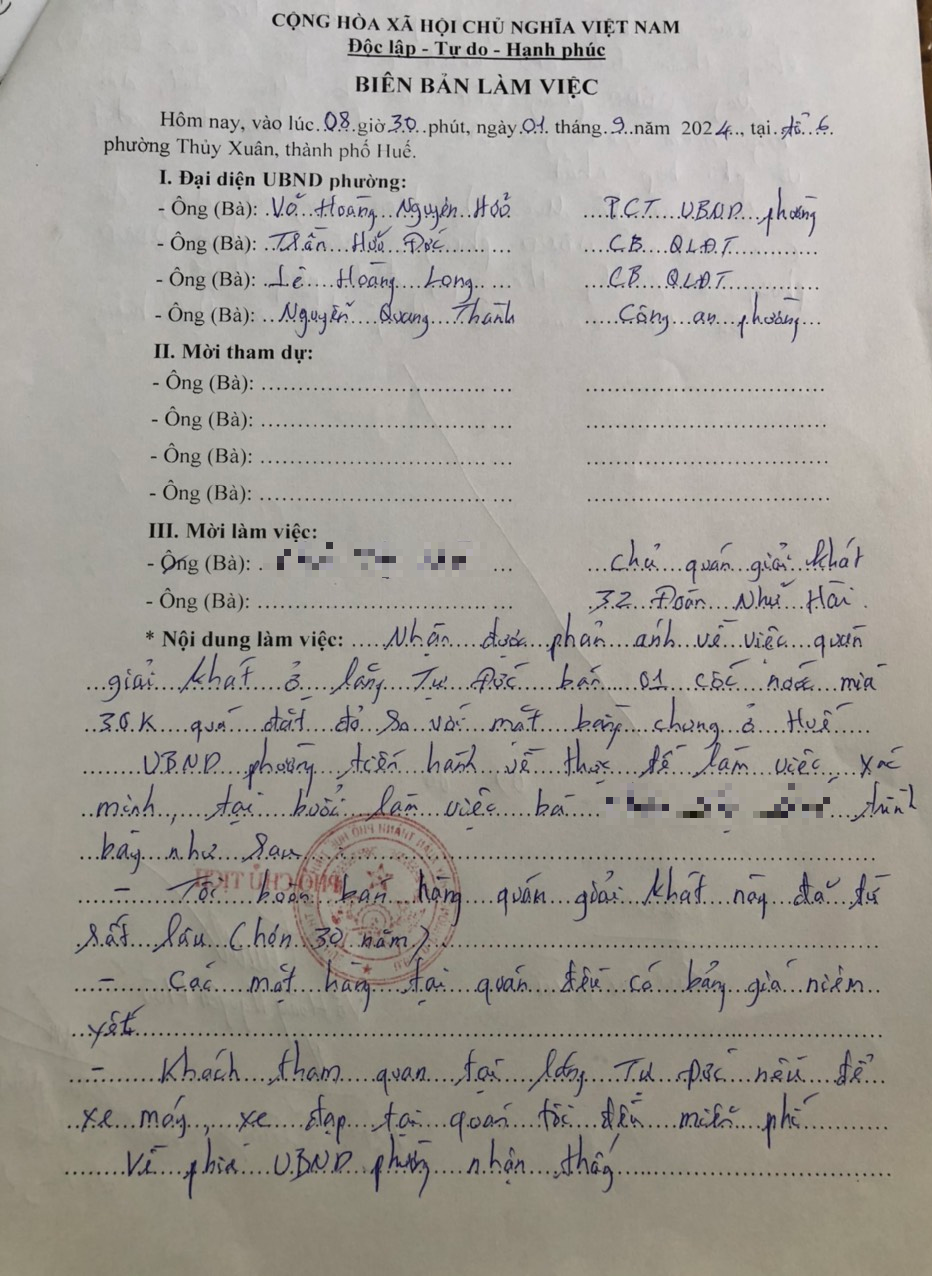 CỘNG HÒA XÃ HỘI CHỦ NGHĨA VIỆT NAM
Độc lập - Tự do - Hạnh phúc
BIÊN BẢN LÀM VIỆC
Hôm nay, vào lúc 08 giờ 30 phút, ngày 01 tháng 9 năm 2024, tại tổ 6
phường Thủy Xuân, thành phố Huế.
I. Đại diện UBND phường:
- Ông (Bà): Võ Hoàng Nguyên P.C.T UBND phường
- Ông (Bà): Trần Hữu Đức CB QLĐT
- Ông (Bà): Lê Hoàng Long CB QLĐT
- Ông (Bà): Nguyễn Quang Thành Công an phường
II. Mời tham dự:
- Ông (Bà):
- Ông (Bà):
- Ông (Bà):
- Ông (Bà):
III. Mời làm việc:
- Ông (Bà): Chủ quán giải khát
- Ông (Bà): 32 Đoàn Nhữ Hài
* Nội dung làm việc: Nhận được phản ánh về việc quán
giải khát ở lăng Tự Đức bán 01 cốc nước mía
30K quá đắt đỏ so với mặt bằng chung ở Huế
UBND phường tiến hành về thực tế làm việc, xác
minh, tại buổi làm việc bà trình
bày như sau
- Tôi buôn bán hàng quán giải khát này đã từ
rất lâu (hơn 30 năm)
- Các mặt hàng tại quán đều có bảng giá niêm
yết
- Khách tham quan tại lăng Tự Đức nếu để
xe máy, xe đạp tại quán tôi đều miễn phí
Về phía UBND phường nhận thấy
PHÓ CHỦ TỊCH